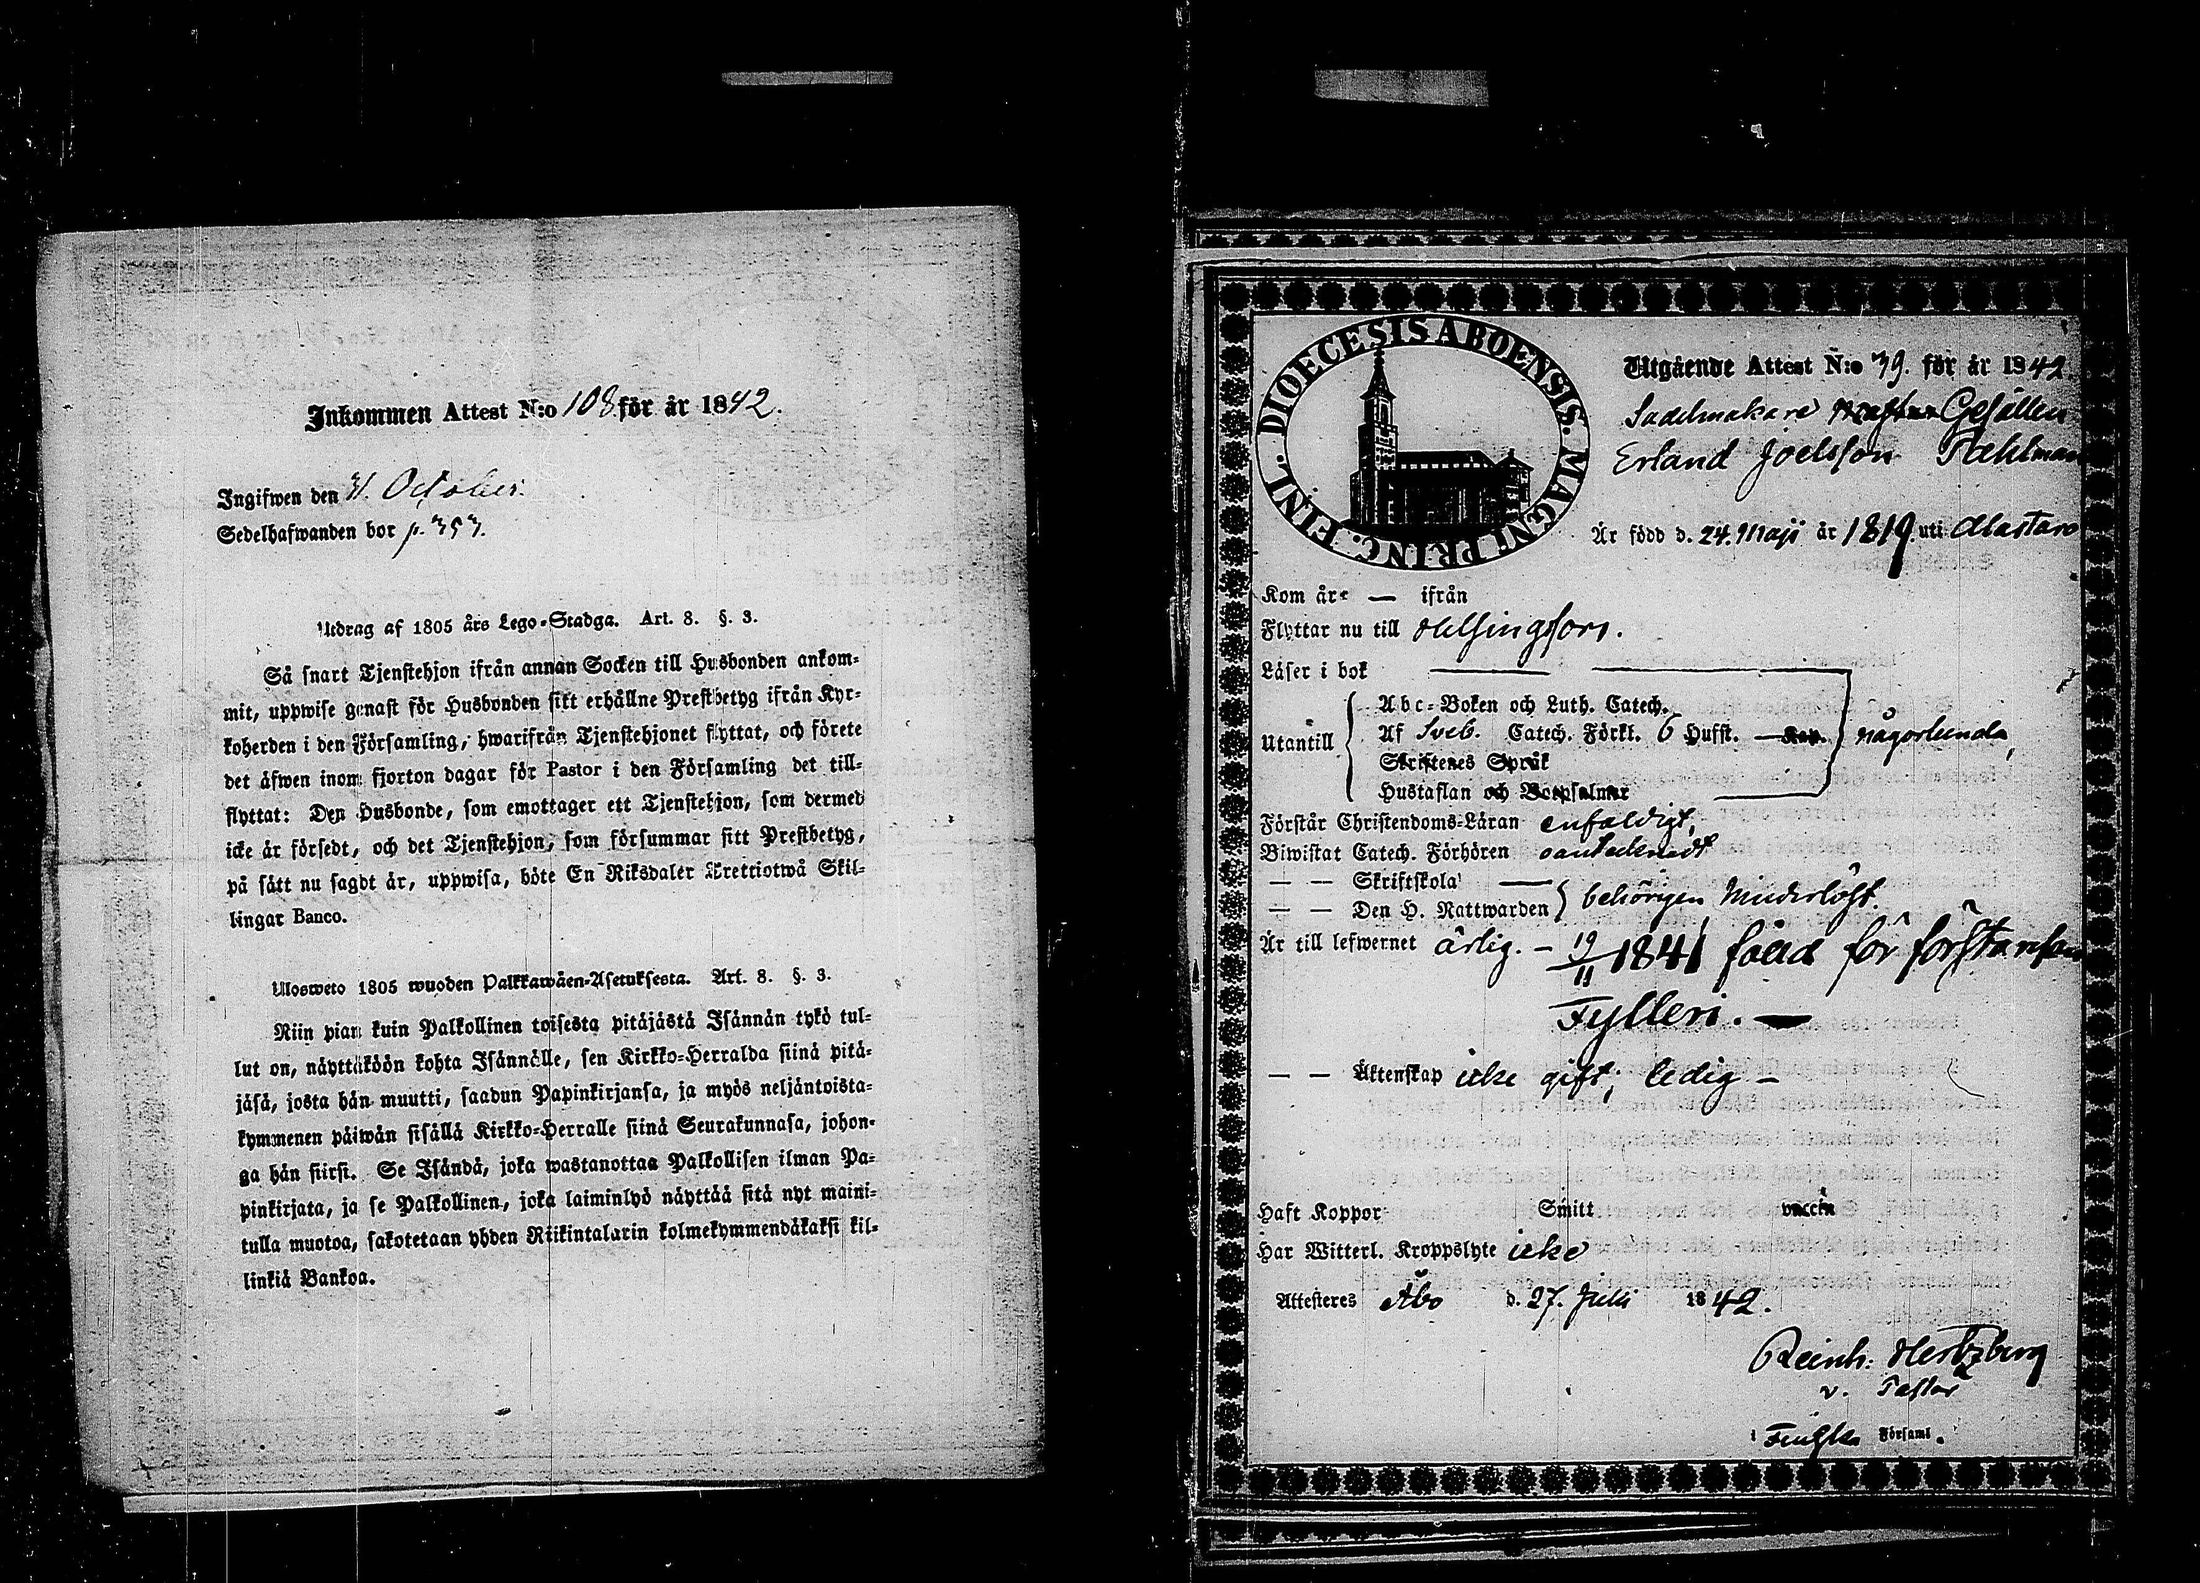 Inkommen Attest N:o 108. för år 1842.
Ingifwen den 31. October.
Sedelhafwanden bor p. 353.
Utdrag af 1805 års Lego-Stadga. Art. 8. §. 3.
Så snart Tjenstehjon ifrån annan Socken till Husbonden ankom-
mit, uppwise genast för Husbonden sitt erhållne Prestbetyg ifrån Kyr-
koherden i den Församling, hwarifrån Tjenstehjonet flyttat, och förete
det äfwen inom fjorton dagar för Pastor i den Församling det till-
flyttat: Den Husbonde, som emottager ett Tjenstehjon, som dermed
icke är försedt, och det Tjenstehjon, som försummar sitt Prestbetyg,
på sätt nu sagdt är, uppwisa, böte En Riksdaler Trettiotwå Skil-
lingar Banco.
Ulosweto 1805 wuoden Palkkawäen-Asetuksesta. Art. 8. §. 3.
Niin pian kuin Palkollinen toisesta pitäjästä Isännän tykö tul-
lut on, näyttäköön kohta Isännälle, sen Kirkko-Herralda siinä pitä-
jäsä, josta hän muutti, saadun Papinkirjansa, ja myös neljäntoista-
kymmenen päiwän sisällä Kirkko-Herralle siinä Seurakunnasa, johon-
ga hän siirsi. Se Isändä, joka wastanottaa Palkollisen ilman Pa-
pinkirjata, ja se Palkollinen, joka laiminlyö näyttää sitä nyt maini-
tulla muotoa, sakotetaan yhden Riikintalarin kolmekymmendäkaksi kil-
linkiä Bankoa.
DIOECESIS ABOENSIS. MAGNI PRINC. FINL.
Utgående Attest N:o 39. för år 1842.
Sadelmakare Gesällen
Erland Joelsson Ståhlman
Är född d. 24. Maji år 1819. uti Alastaro
Kom år — ifrån
Flyttar nu till Helsingfors.
Läser i bok
Abc-Boken och Luth. Catech.
Utantill Af Sveb. Catech. Förkl. 6 Hufst. — Kap. någorlunda,
Skriftenes Språk
Hustaflan och Botpsalmar
Förstår Christendoms-Läran enfaldigt,
Biwistat Catech. Förhören oantecknadt
— — Skriftskola
— — Den H. Nattwarden behörigen Minderlöst.
Är till lefwernet ärlig. — 19/11 1841 fäld för förstagången
Fylleri. —
— — Äktenskap icke gift; ledig —
Haft Koppor Smitt vaccin
Har Witterl. Kroppslyte icke
Attesteres Åbo d. 27. Juli 1842.
Reinh. Hertzberg
v. Pastor
i Finska Församl.